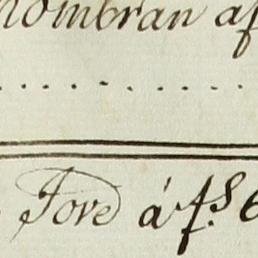 nombran af
Tove á fs 6